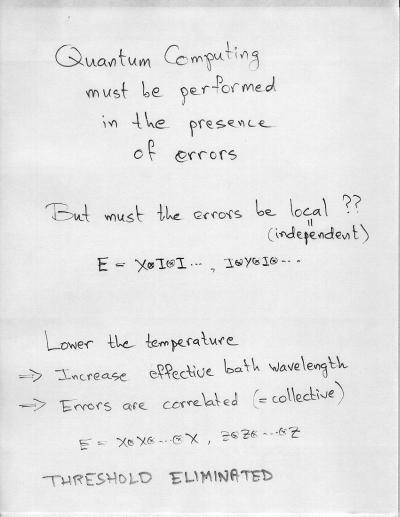 Quantum Computing
must be performed
in the presence
of errors
But must the errors be local ??
=
(independent)
E = X⊗I⊗I... , I⊗Y⊗I⊗...
Lower the temperature
⇒ Increase effective bath wavelength
⇒ Errors are correlated (= collective)
E = X⊗X⊗...⊗X , Z⊗Z⊗...⊗Z
THRESHOLD ELIMINATED